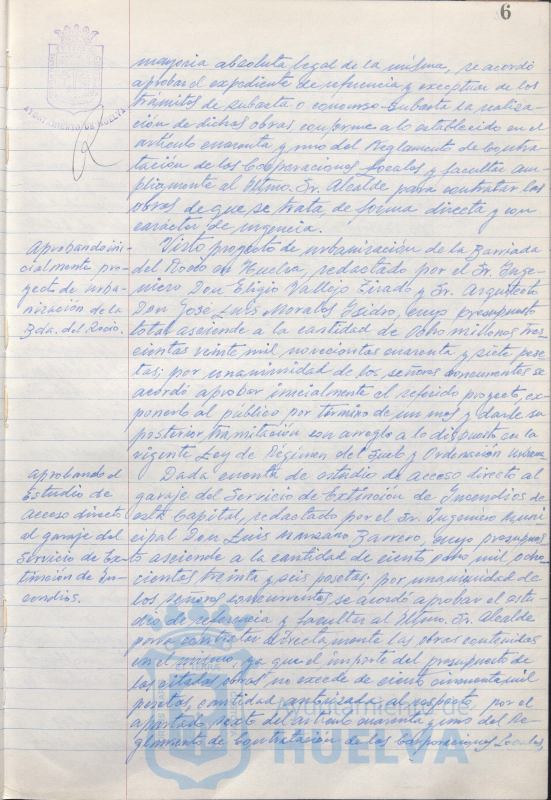 6
AYUNTAMIENTO DE HUELVA
mayoria absoluta legal de la misma, se acordó
aprobar el expediente de referencia y exceptuar de los
trámites de subasta o concurso-subasta la realiza-
ción de dichas obras conforme a lo establecido en el
artículo cuarenta y uno del Reglamento de Contra-
tación de las Corporaciones Locales y facultar am-
pliamente al Iltmo. Sr. Alcalde para contratar las
obras de que se trata, de forma directa y con
carácter de urgencia.
Aprobando ini-
cialmente pro-
yecto de urba-
nización de la
Bda. del Rocio.
Visto proyecto de urbanización de la Barriada
del Rocio en Huelva, redactado por el Sr. Inge-
niero Don Eligio Vallejo Tirado y Sr. Arquitecto
Don José Luis Morales Isidro, cuyo presupuesto
total asciende a la cantidad de Ocho millones tres-
cientas veinte mil novecientas cuarenta y siete pese-
tas; por unanimidad de los señores concurrentes se
acordó aprobar inicialmente el referido proyecto, ex-
ponerlo al público por término de un mes y darle su
posterior tramitación con arreglo a lo dispuesto en la
vigente Ley de Régimen del Suelo y Ordenación Urbana.
aprobando el
Estudio de
acceso directo
al garaje del
Servicio de Ex-
tinción de In-
cendios.
Dada cuenta de estudio de acceso directo al
garaje del Servicio de Extinción de Incendios de
esta Capital, redactado por el Sr. Ingeniero Muni-
cipal Don Luis Manzano Barrero, cuyo presupues-
to asciende a la cantidad de ciento ocho mil ocho-
cientas treinta y seis pesetas; por unanimidad de
los señores concurrentes se acordó aprobar el estu-
dio de referencia y facultar al Iltmo. Sr. Alcalde
para contratar directamente las obras contenidas
en el mismo, ya que el importe del presupuesto de
las citadas obras no excede de ciento cincuenta mil
pesetas, cantidad autorizada al respecto, por el
apartado sexto del artículo cuarenta y uno del Re-
glamento de Contratación de las Corporaciones Locales,
Ayuntamiento de
HUELVA